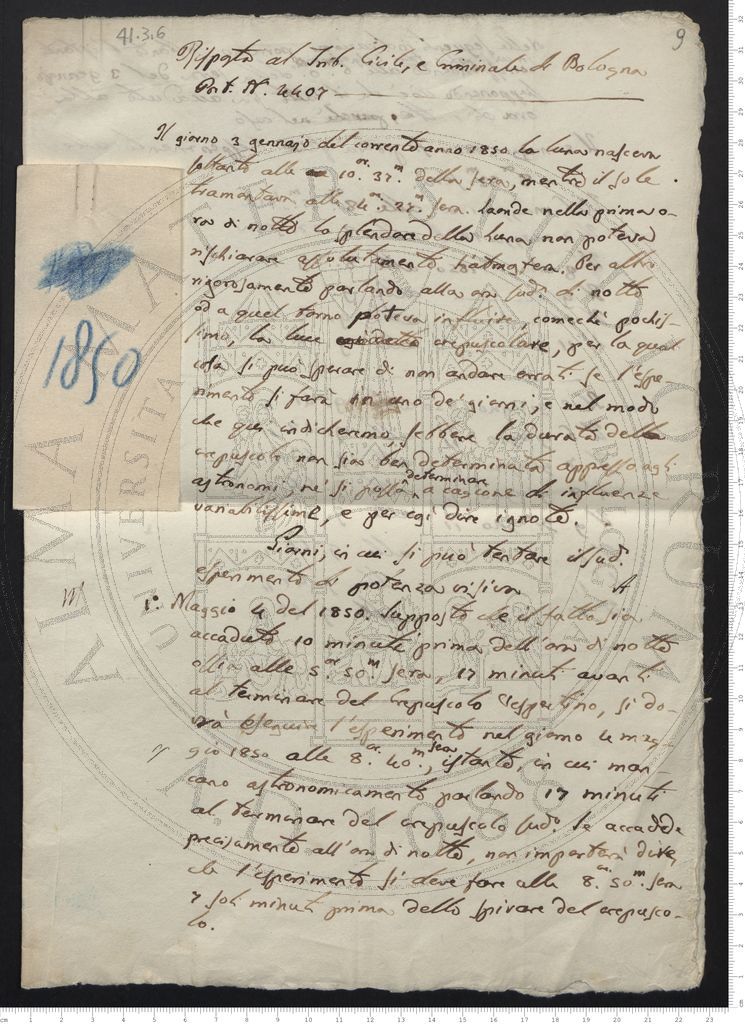 41.3.6
9
Risposta al Trib. Civile, e Criminale di Bologna
Prot. N. 4407
Il giorno 3 gennajo del corrente anno 1850 la luna nasceva
soltanto alle 10.or 37.m della sera, mentre il sole
tramontava alle 4.or 27.m sera. Laonde nella prima o-
ra di notte lo splendore della Luna non poteva
rischiarare assolutamente l'atmosfera. Per altro
rigorosamente parlando alla ora sud.a di notte
od a quel torno poteva influire, comechè pochis-
simo, la luce crepuscolare, per la qual
cosa si può sperare di non andare errati se l'espe-
rimento si farà in uno de' giorni, e nel modo
che qui indicheremo, sebbene la durata della
crepuscolo non sia ben determinata appresso agli
astronomi, nè si possa determinare a cagione di influenze
variabilissime, e per così dire ignote.
Giorni, in cui si può tentare il sud.o
esperimento di potenza visiva A
1.o Maggio 4 del 1850. Supposto che il fatto sia
accaduto 10 minuti prima dell'ora di notte
ossia alle 5.or 50.m sera, 17 minuti avanti
al terminare del Crepuscolo Vespertino, si do-
vrà eseguire l'esperimento nel giorno 4 mag-
gio 1850 alle 8.or 40.m sera, istante, in cui man-
cano astronomicamente parlando 17 minuti
al terminare del crepuscolo sud.o Se accadde
precisamente all'ora di notte, non importerà dire,
che l'esperimento si deve fare alle 8.or 50.m sera
7 soli minuti prima dello spirare del crepusco-
lo.
1850